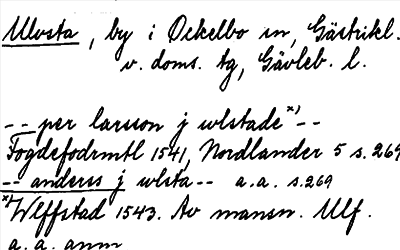 Ulvsta, by i Ockelbo sn, Gästrikl.
v. doms. tg, Gävleb. l.
-- per larsson j wlstade x) --
Fogdefodrmtl 1541, Nordlander 5 s. 269
-- anderss j wlsta -- a.a. s. 269
x) Wlffstad 1543. Av mansn. Ulf.
a. a. anm